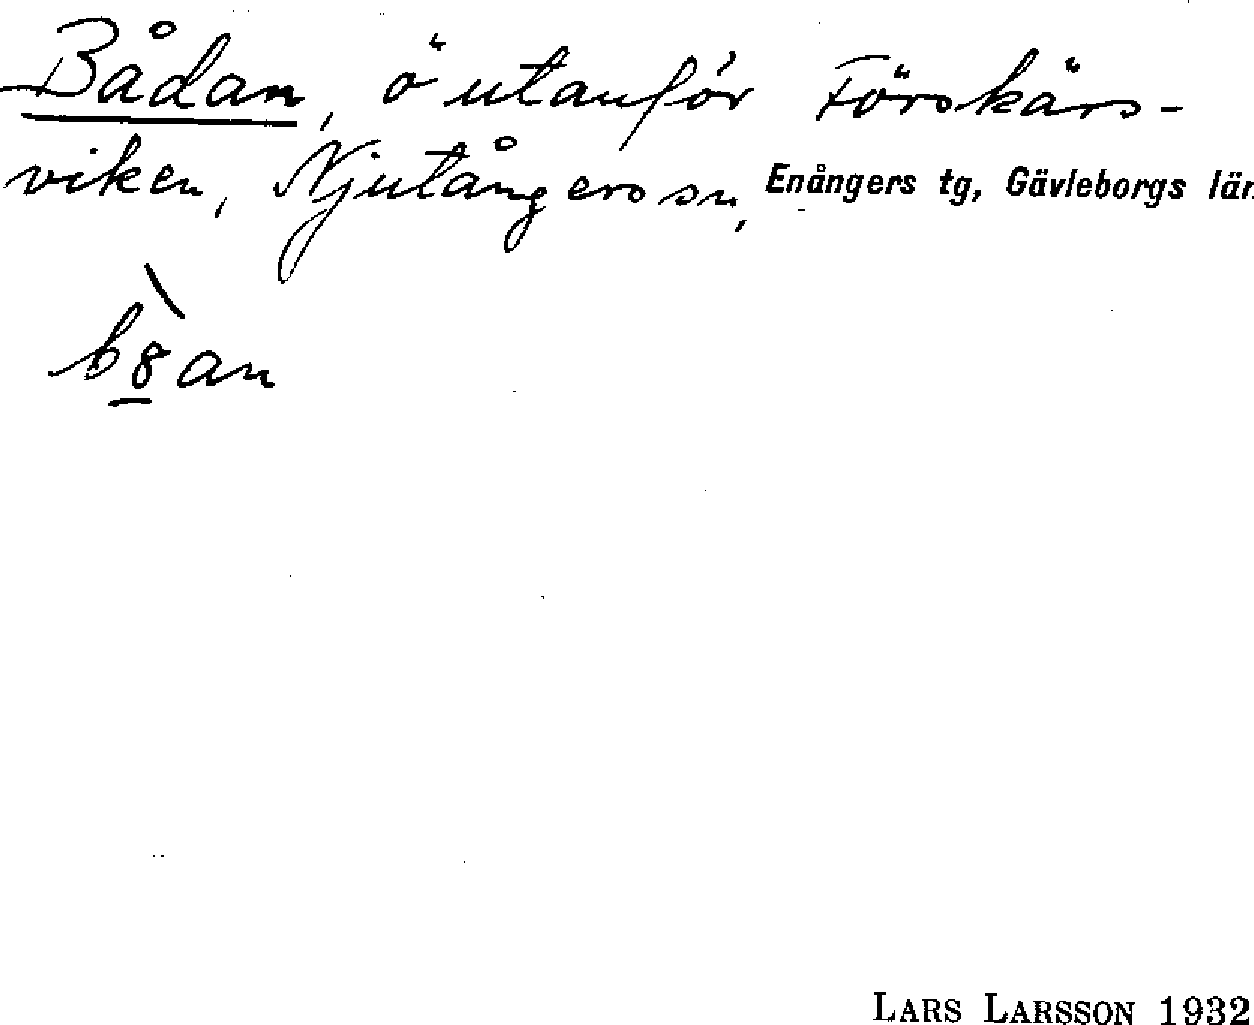 Bådan, ö utanför Förskärs-
viken, Njutångers sn, Enångers tg, Gävleborgs län
b8an
LARS LARSSON 1932